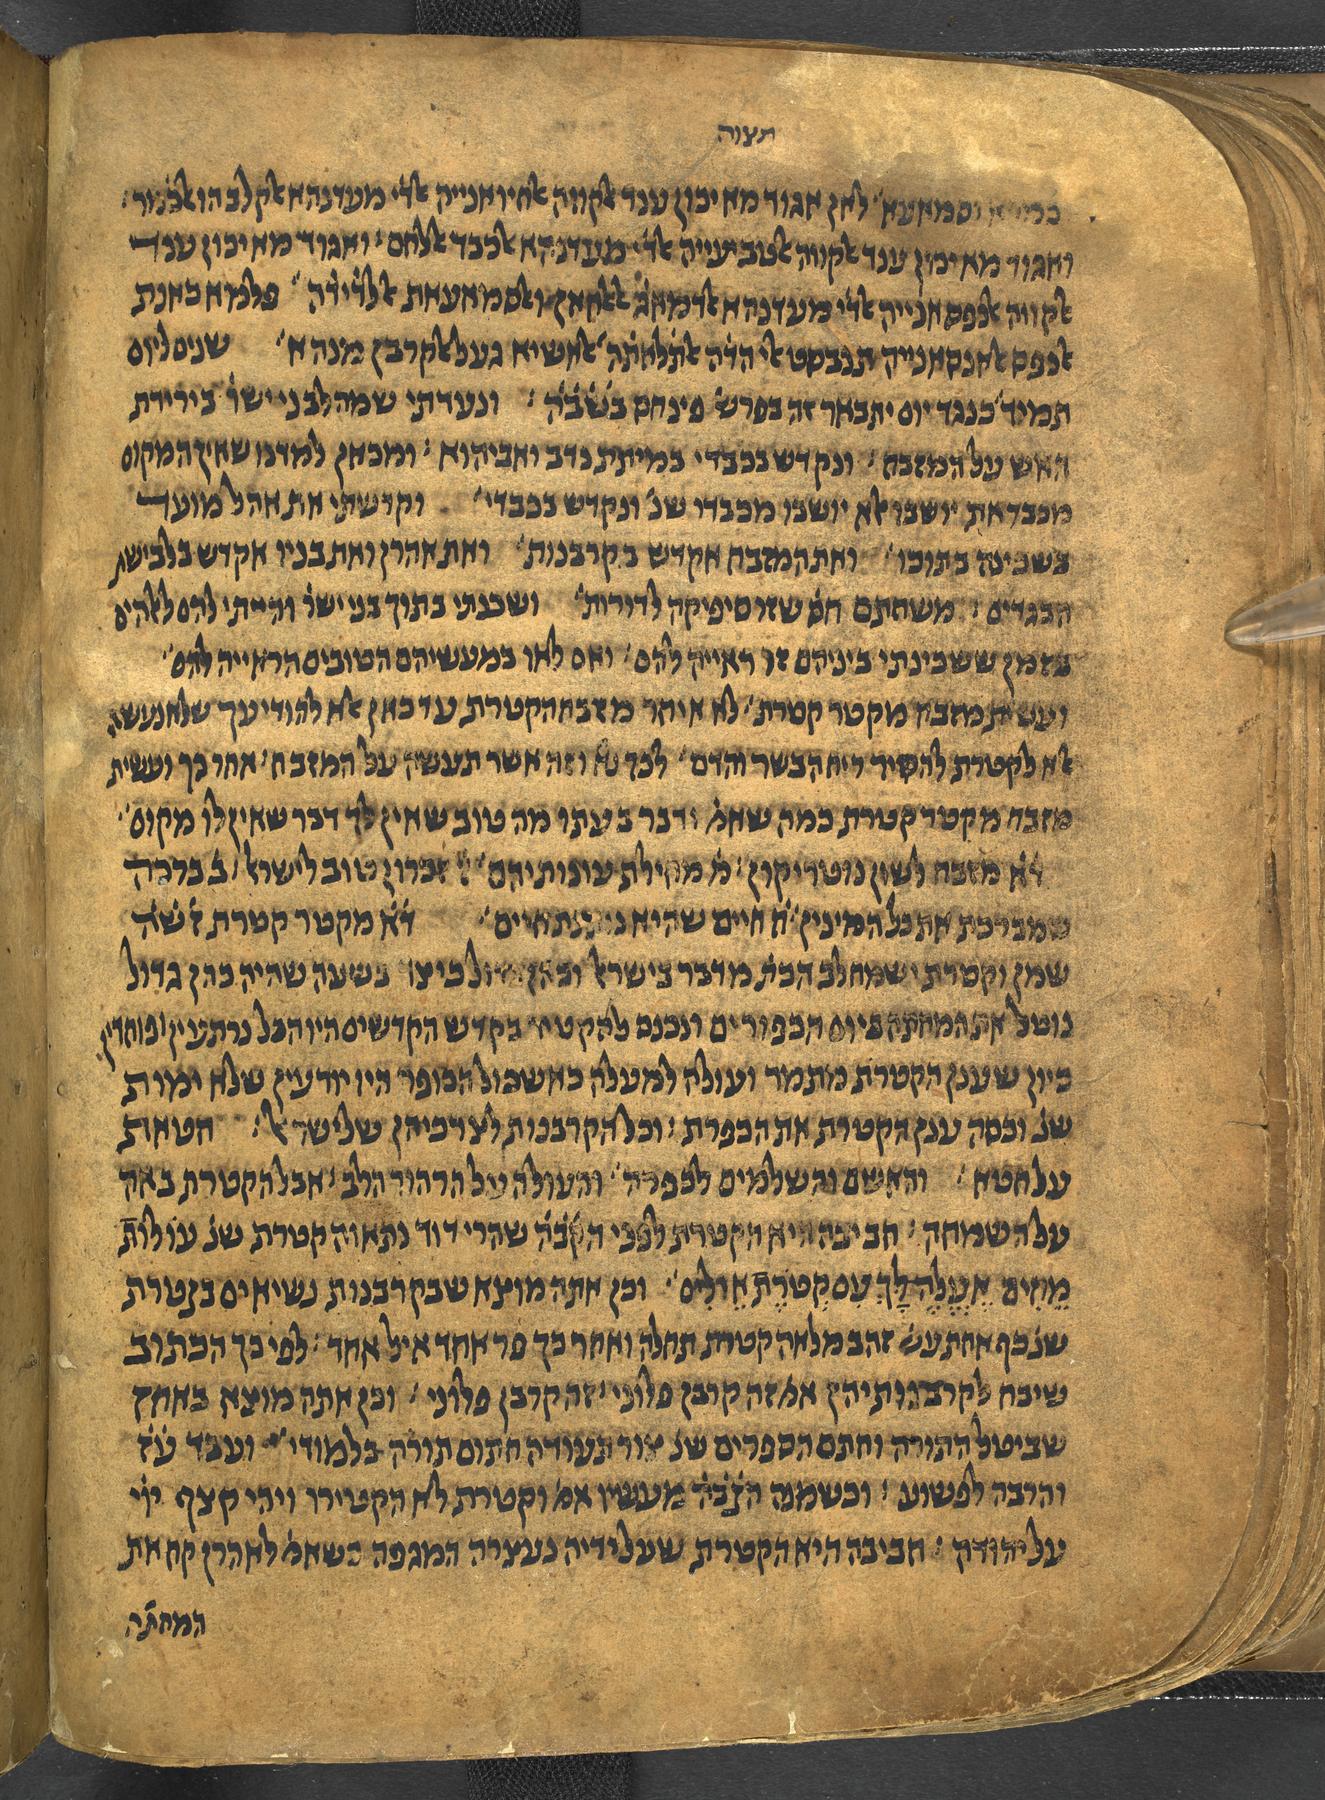 תצוה
וסמאעא לאן אגוד מא יכון ענד אלקווה אלחיואנייה אלדי מעדנהא אלקלב הו אלכנור:
ואגוד מא יכון ענד אלקווה אלטביעייה אלדי מעדנהא אלכבד אללחם: ואגוד מא יכון ענד
אלקווה אלנפסאנייה אלדי מעדנהא אלדמאג אלאלחאן ואלסמאעאת אללדידה פלמא כאנת
אלנפס אלאנסאנייה תנבסט אלי הדה אלתלאתה אלאשיא געל אלקרבן מנהא שנים ליום
תמיד כנגד יום יתבאר זה בפרש׳ פינחס בשׄבׄהׄ: ונעדתי שמה לבני ישר׳ בירידת
האש על המזבח: ונקדש בכבדי במיתת נדב ואביהוא: ומכאן למדנו שאין המקום
מכבד את יושבו אלא יושבו מכבדו שנ׳ ונקדש בכבדי וקדשתי את אהל מועד
בשכינה בתוכו ואת המזבח אקדש בקרבנות ואת אהרן ואת בניו אקדש בלבישת
הבגדים: משחתם הם שזו סיפיקה לדורות ושכנתי בתוך בני ישר׳ והייתי להם לאלהים
בזמן ששכינתי ביניהם זו ראייה להם: ואם לאו במעשיהם הטובים הראייה להם
ועשית מזבח מקטר קטרת לא איחר מזבח הקטרת עד כאן אלא להודיעך שלא נעשה
אלא לקטרת להסיר ריח הבשר והדם לכך נא׳ וזה אשר תעשה על המזבח אחר כך ועשית
מזבח מקטר קטרת כמה שאמ׳ ודבר בעתו מה טוב שאין לך דבר שאין לו מקום
דׄאׄ מזבח לשון נוטריקון: מ׳ מחילת עונותיהם ז׳ זכרון טוב לישראל: ב׳ ברכה
שמברכת את כל המינין ח׳ חיים שהיא נותנת חיים דׄאׄ מקטר קטרת זׄשׄהׄ
שמן וקטרת ישמח לב הכת׳ מדבר בישראל ובכהן גדול כיצד בשעה שהיה כהן גדול
נוטל את המחתה ביום הכפורים ונכנס להקטיר בקדש הקדשים היו הכל נרתעין ופוחדין
כיון שענן הקטרת מתמר ועולה למעלה כאשכול הכופר היו יודעין שלא ימות
שנ׳ וכסה ענן הקטרת את הכפרת: וכל הקרבנות לצרכיהן שלישראל: חטאת
על חטא והאשם והשלמים לכפרה והעולה על הרהור הלב: אבל הקטרת באה
על השמחה: חביבה היא הקטרת לפני הקׄבׄהׄ שהרי דוד נתאוה קטרת שנ׳ עולות
מֵחִים אַעֲלֶה לָּךְ עִם קְטֹרֶת אֵילִים וכן אתה מוצא שבקרבנות נשיאים בקטרת
שנ׳ כף אחת עש׳ זהב מלאה קטרת תחלה ואחר כך פר אחד איל אחד: לפי כך הכתוב
שיבח לקרבנותיהן אמ׳ זה קרבן פלוני זה קרבן פלוני: וכן אתה מוצא באחז
שביטל התורה וחתם הספרים שנ׳ צור תעודה חתום תורה בלמודי ועבד עׄזׄ
והרבה לפשוע: וכשמנה הקׄבׄהׄ מעשיו אמ׳ וקטרת לא הקטירו ויהי קצף יוׄיׄ
על יהודה: חביבה היא הקטרת שעל ידיה נעצרה המגפה כשאמ׳ לאהרן קח את
המחתה